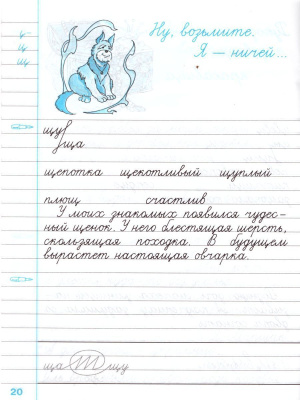 Ну, возьмите.
Я — ничей...
ц
щ
щу
ща
щепотка щекотливый щуплый
плющ счастлив
У моих знакомых появился чудес-
ный щенок. У него блестящая шерсть,
скользящая походка. В будущем
вырастет настоящая овчарка.
ща щу
20